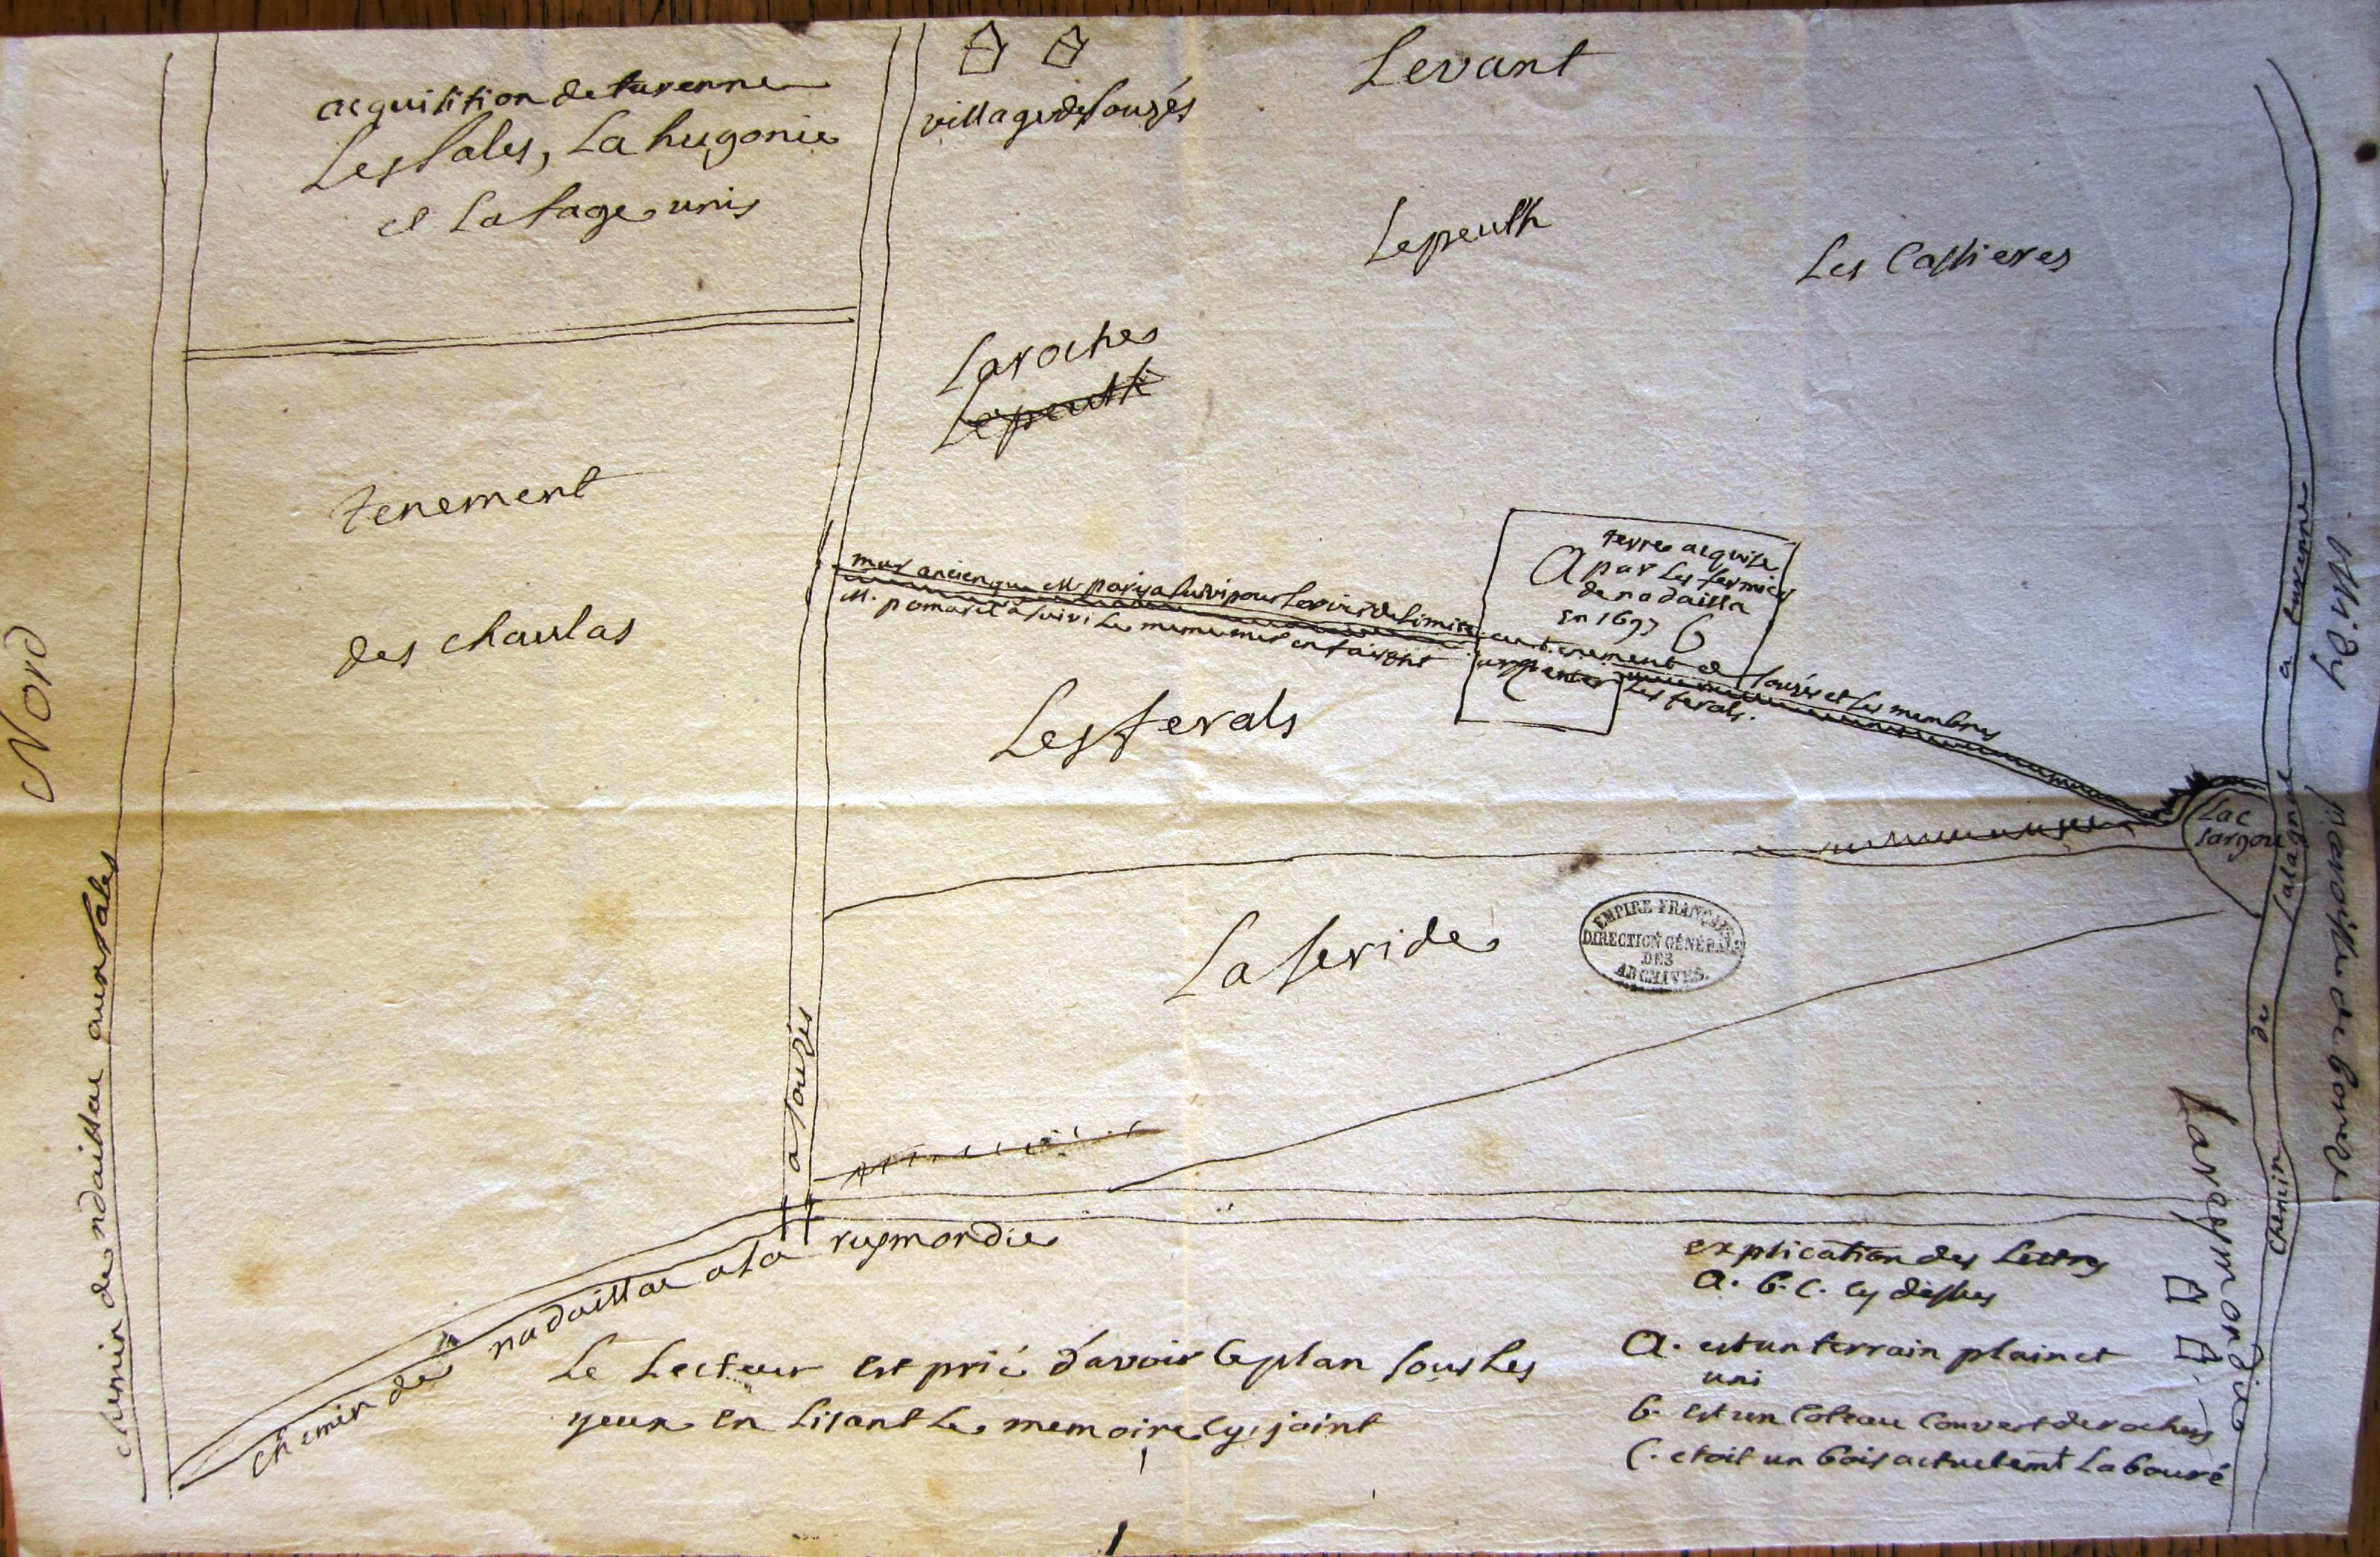 Levant
acquisition de turenne
Les sales, La hugonie
et La fage unis
village de souzés
Le peuth
Les Cassieres
Laroche
Le peuth
tenement
des chaulas
Nord
Midy
mur ancien que M. parisa suivi pour servir de limite au tenement de souzés et les membres
M. pomarel a suivi Le meme mur en faisant arpenter Les ferals.
terre acquise
A par Les fermiers
de nadailla
en 1697 B
C
Les ferals
Lac
sargou
La seride
EMPIRE FRANÇAIS
DIRECTION GÉNÉRALE
DES
ARCHIVES.
a souzés
chemin de nadaillac aux sales
chemin de nadaillac a La raymondie
chemin de Lalagne a turenne
paroisse de boreze
La raymondie
Le Lecteur est prié d'avoir le plan sous Les
yeux en Lisant Le memoire cy joint
explication des Lettres
A. B. C. cy dessus
A. est un terrain plain et
uni
B. est un Coteau Couvert de rochers
C. etoit un bois actuelemt Labouré